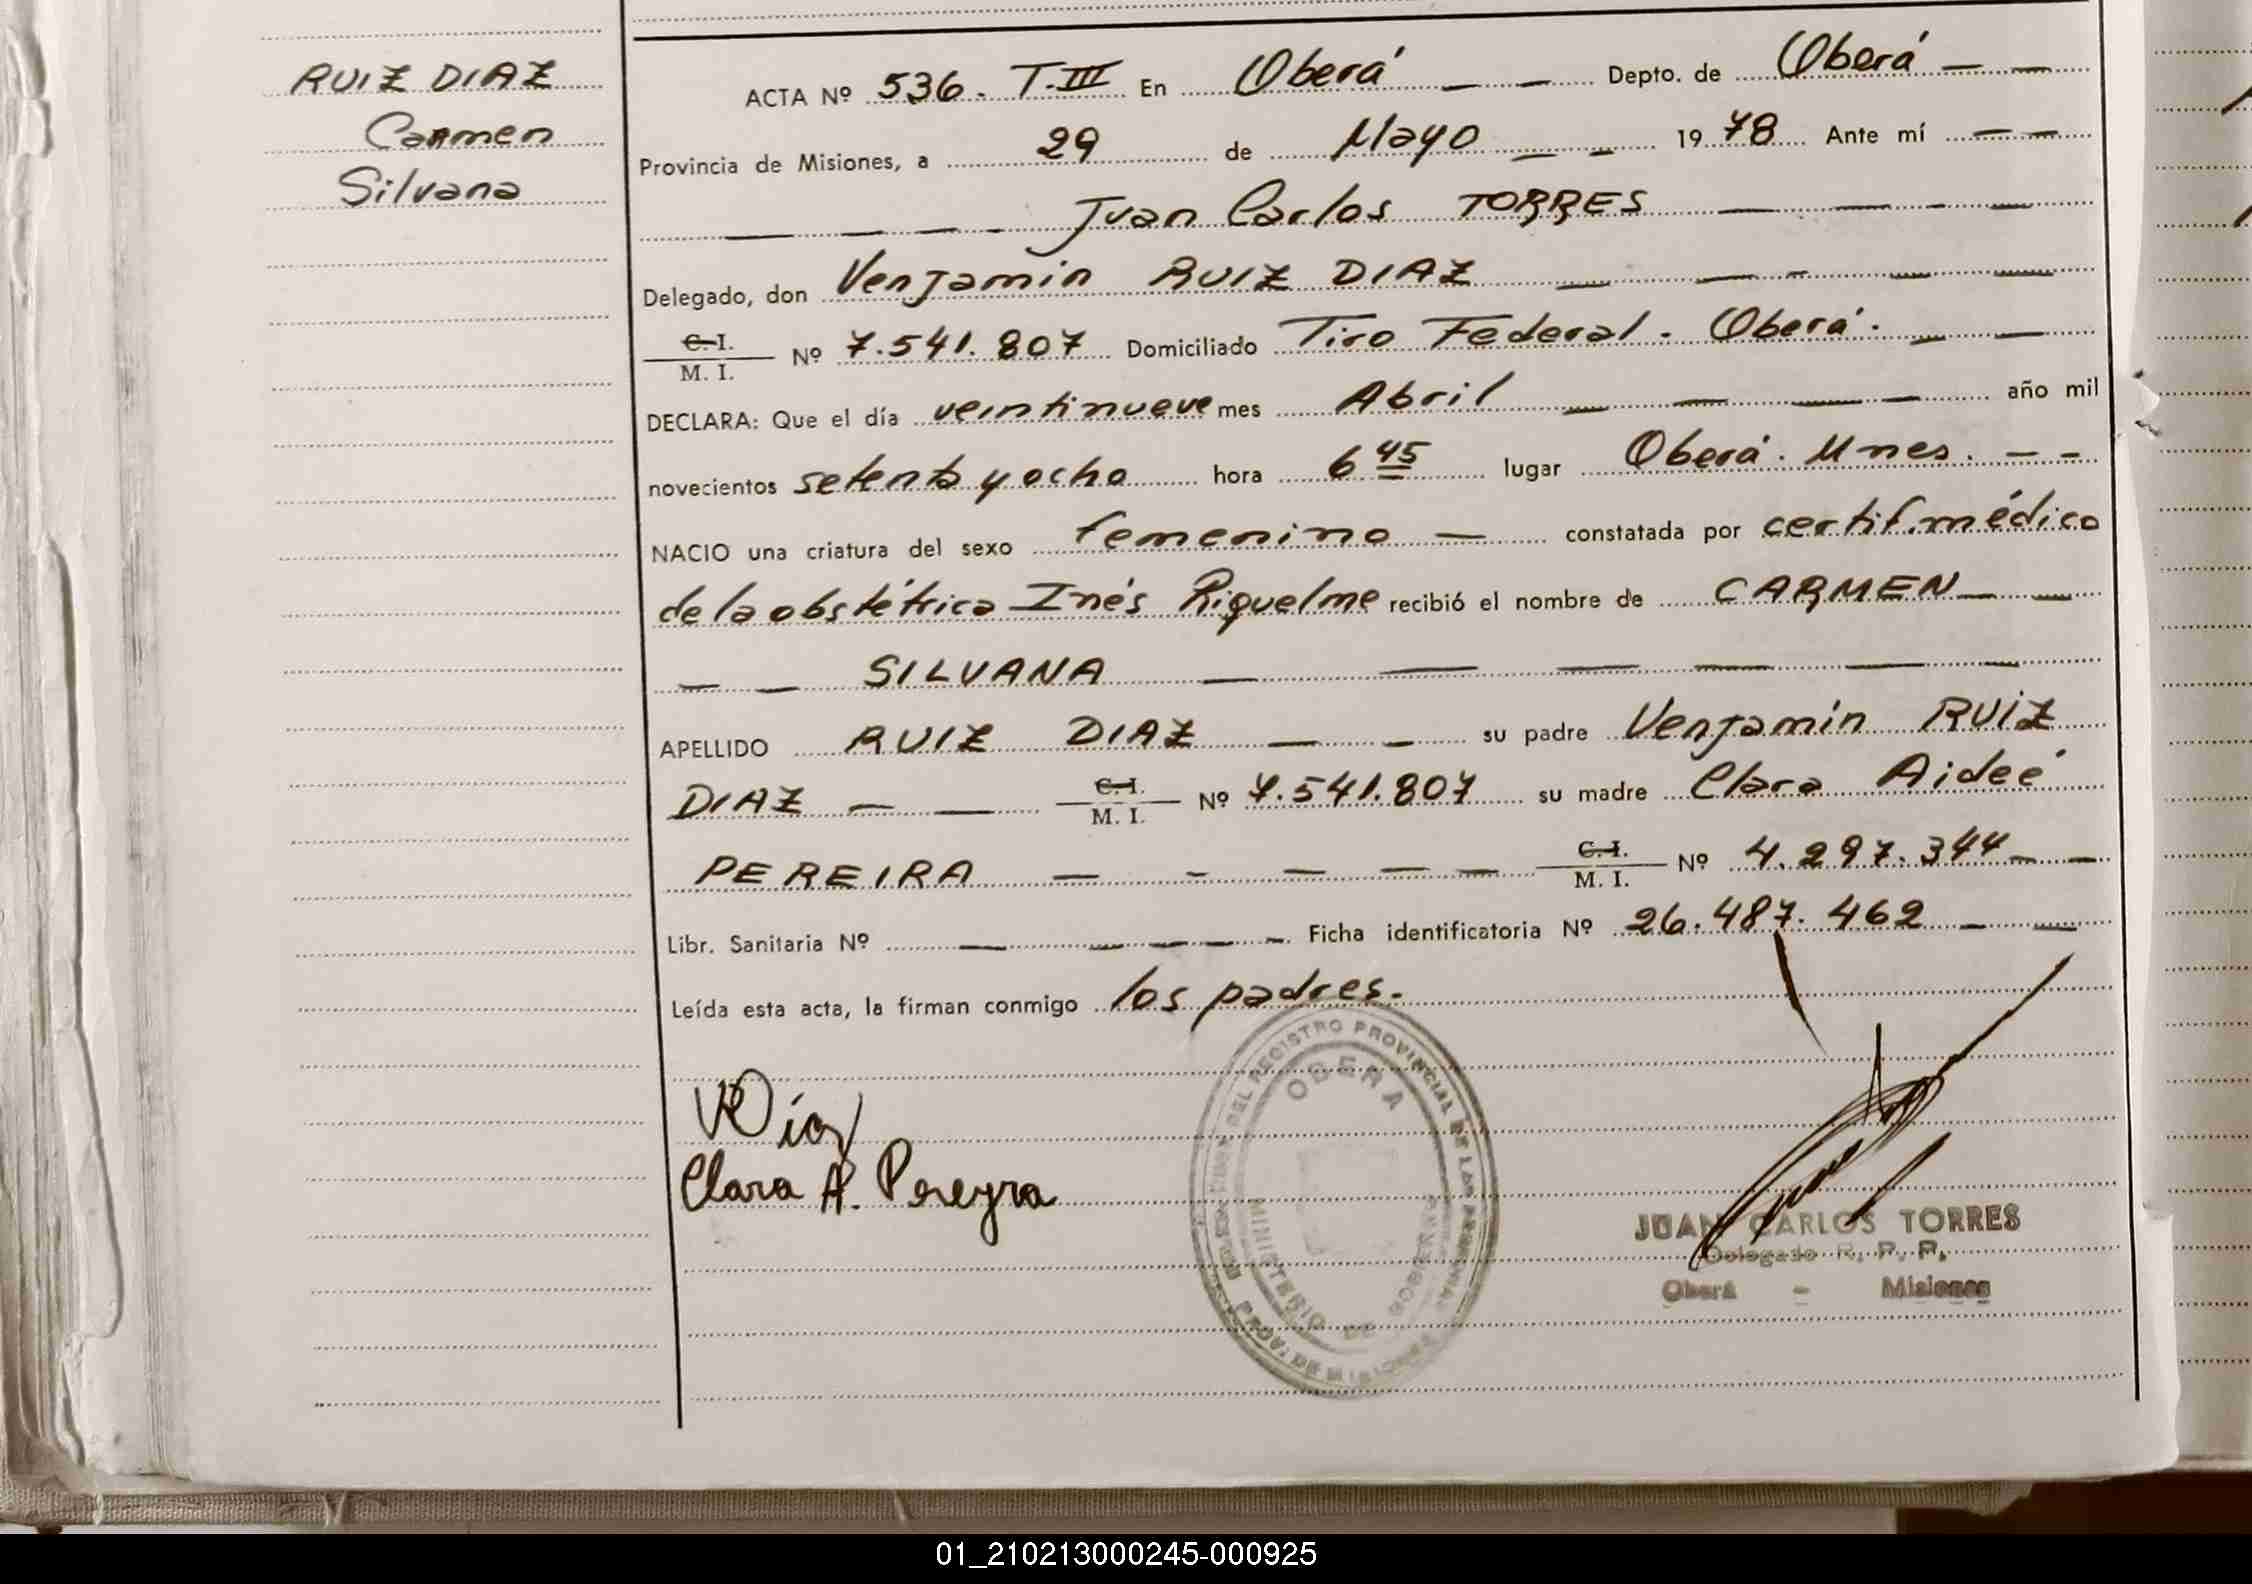 RUIZ DIAZ
Carmen
Silvana
ACTA Nº 536. T.III En Oberá Depto. de Oberá
Provincia de Misiones, a 29 de Mayo 1978 Ante mí
Juan Carlos TORRES
Delegado, don Venjamin RUIZ DIAZ
C.I.
M. I. Nº 7.541.807 Domiciliado Tiro Federal. Oberá.
DECLARA: Que el día veintinueve mes Abril año mil
novecientos setenta y ocho hora 6 45 lugar Oberá. Mnes.
NACIO una criatura del sexo femenino constatada por certif. médico
de la obstétrica Inés Riquelme recibió el nombre de CARMEN
SILVANA
APELLIDO RUIZ DIAZ su padre Venjamin RUIZ
DIAZ C.I. M. I. Nº 7.541.807 su madre Clara Aideé
PEREIRA C.I. M. I. Nº 4.297.344
Libr. Sanitaria Nº Ficha identificatoria Nº 26.487.462
Leída esta acta, la firman conmigo los padres.
Clara A. Pereyra
DEL REGISTRO PROVINCIAL DE LAS PERSONAS
OBERA
MINISTERIO DE GOBIERNO
PROV. DE MISIONES
JUAN CARLOS TORRES
Delegado R. P. P.
Oberá - Misiones
01_210213000245-000925